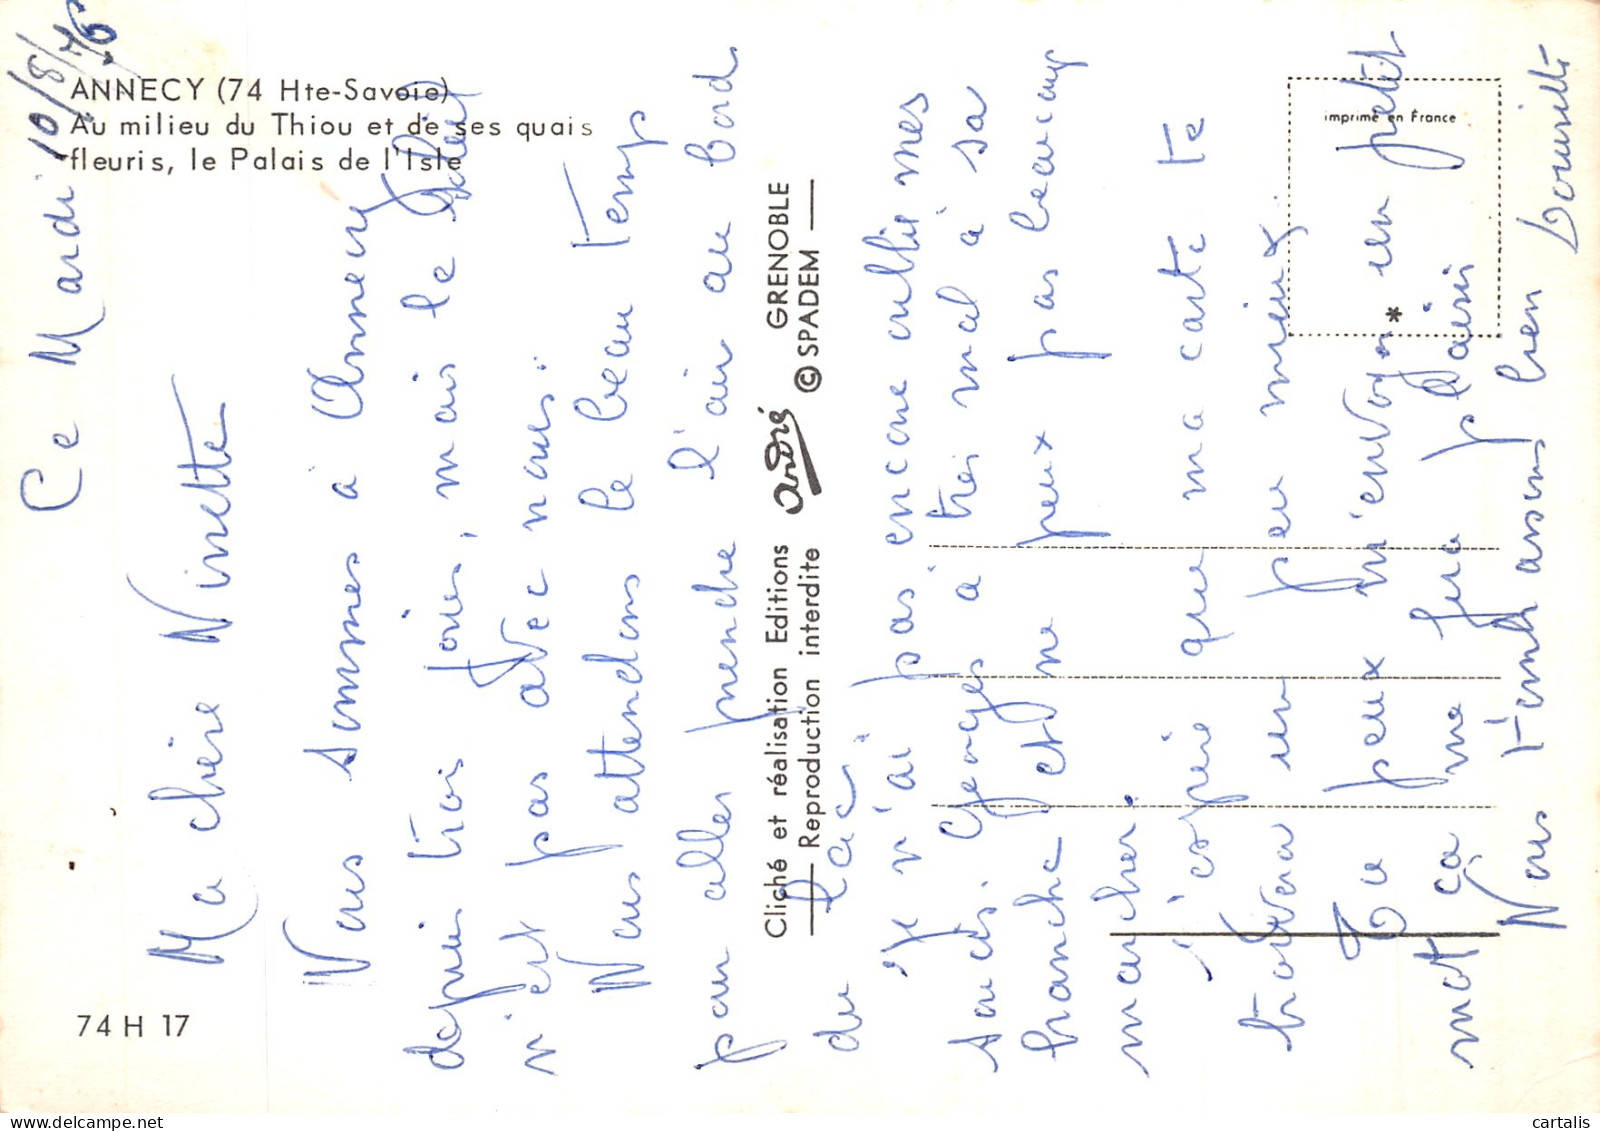 ANNECY (74 Hte-Savoie)
Au milieu du Thiou et de ses quais
fleuris, le Palais de l'Isle
74 H 17
Cliché et réalisation Editions andré GRENOBLE
Reproduction interdite © SPADEM
imprimé en France
*
Ce Mardi 10/8/76
Ma chère Ninette
Nous sommes à Annecy
depuis trois jours, mais le soleil
n'est pas avec nous.
Nous attendons le beau temps
pour aller prendre l'air au bord
du lac.
Je n'ai pas encore oublié mes
soucis. Georges a très mal à sa
hanche et ne peux pas beaucoup
marcher.
J'espère que ma carte te
trouvera un peu mieux.
Tu peux m'envoyer un petit
mot ça me fera plaisir
Nous t'embrassons bien
cartalis